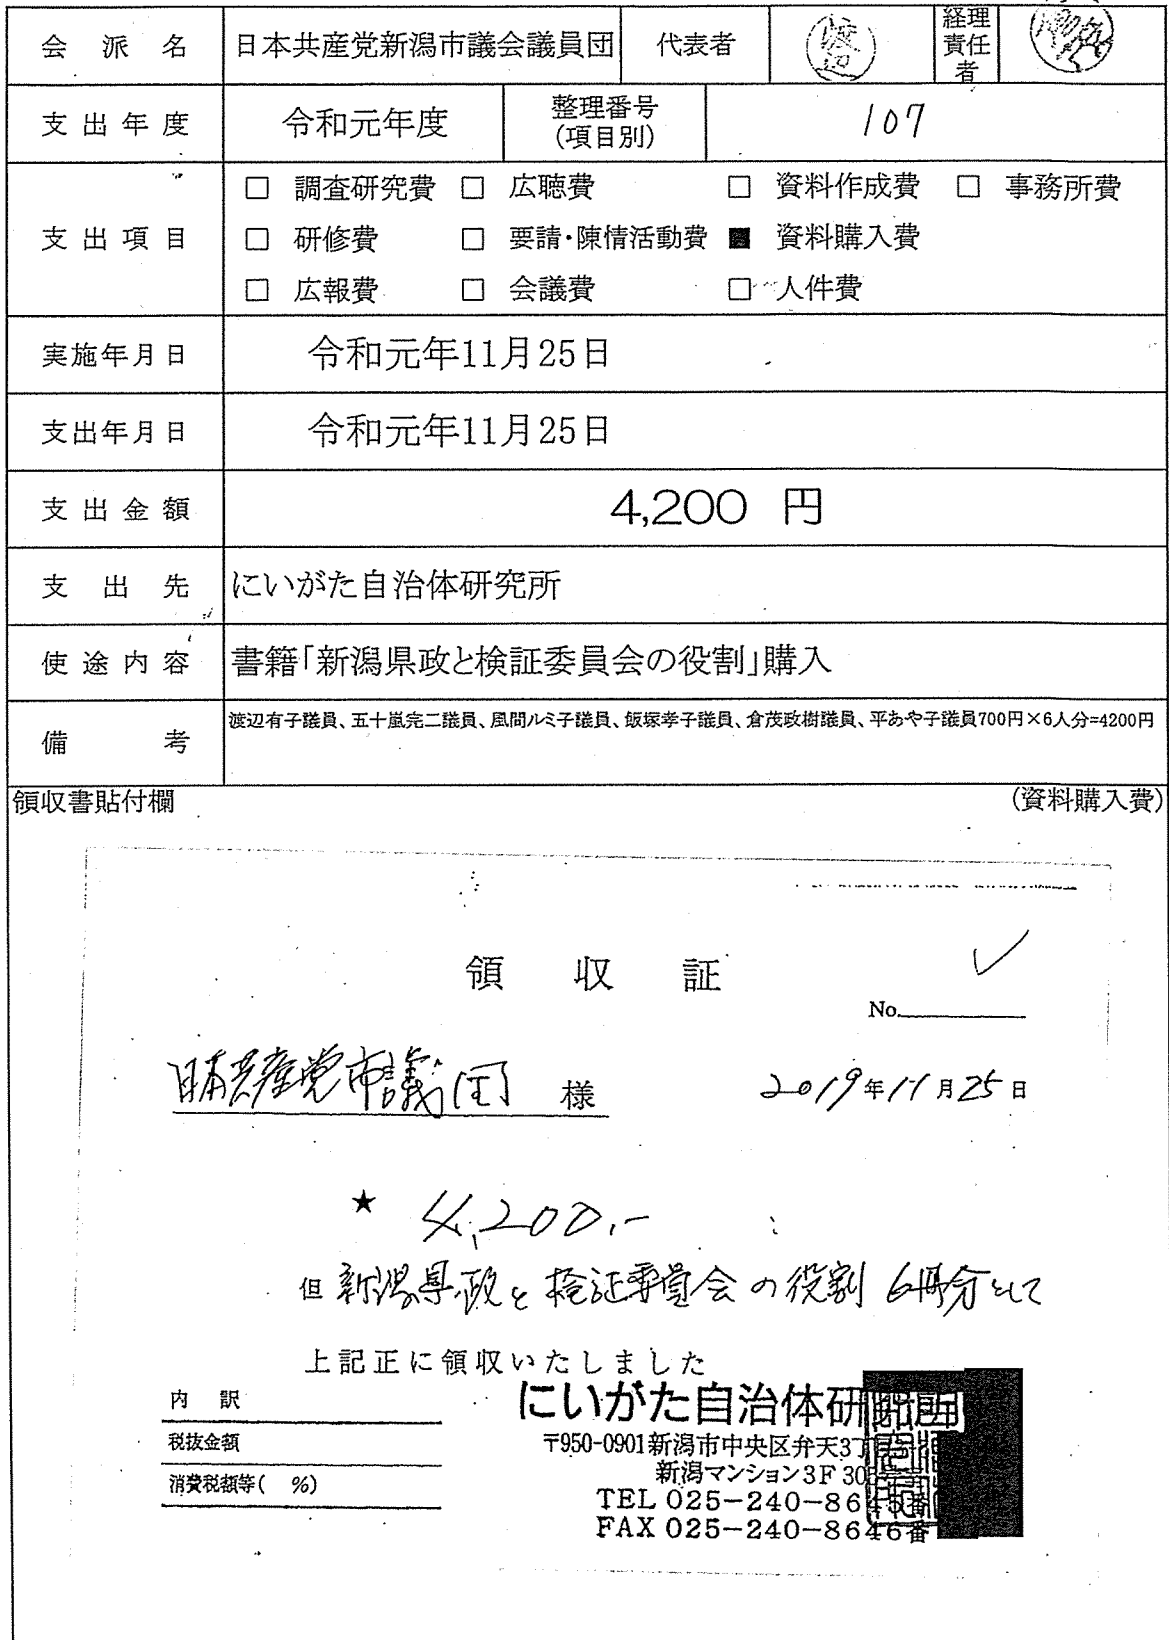 会派名 日本共産党新潟市議会議員団 代表者 渡辺 経理責任者
支出年度 令和元年度 整理番号(項目別) 107
支出項目 □ 調査研究費 □ 広聴費 □ 資料作成費 □ 事務所費
□ 研修費 □ 要請・陳情活動費 ■ 資料購入費
□ 広報費 □ 会議費 □ 人件費
実施年月日 令和元年11月25日
支出年月日 令和元年11月25日
支出金額 4,200 円
支出先 にいがた自治体研究所
使途内容 書籍「新潟県政と検証委員会の役割」購入
備考 渡辺有子議員、五十嵐完二議員、風間ルミ子議員、飯塚孝子議員、倉茂政樹議員、平あや子議員700円×6人分=4200円
領収書貼付欄 (資料購入費)
領収証
No.
日本共産党市議団 様 2019年11月25日
★ 4,200.-
但 新潟県政と検証委員会の役割 6冊分として
上記正に領収いたしました
内訳
税抜金額
消費税額等( %)
にいがた自治体研究所
〒950-0901新潟市中央区弁天3丁
新潟マンション3F 30
TEL 025-240-8645番
FAX 025-240-8646番